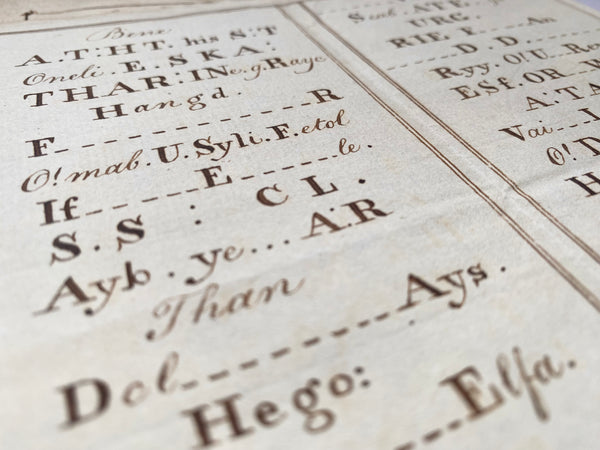 Bene
A.T:HT. his S:T
Oneli. E. SKA:
THAR:INe.g.Raye
Hangd.
F------------R
O!mab.U.Syli.F.etol
If------E------le.
S.S : CL.
Ayb.ye...A:R
Than
Dol----------Ays.
Hego:
---Elfa.
ATE.
URG.
RIE. F------An
------D. D.
Ryy. O!U.
ESf. OR
A:TA
Vai---
O! D
H